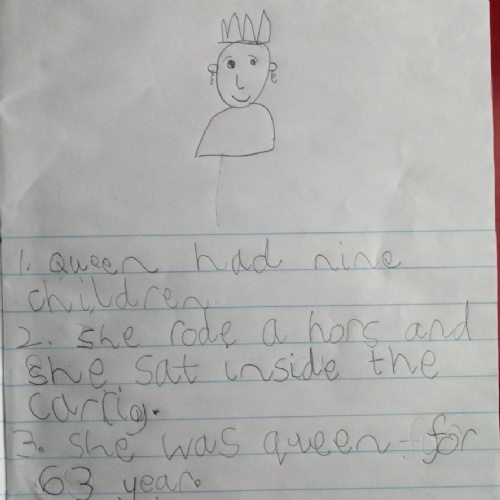 1. queen had nine
children.
2. she rode a hors and
she sat inside the
carrig.
3. she was queen for
63 year.